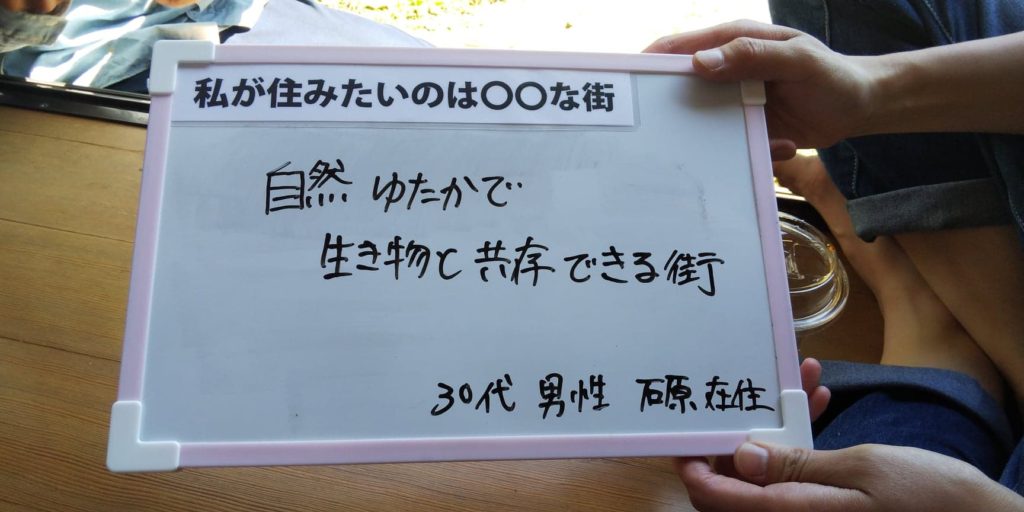 私が住みたいのは〇〇な街
自然 ゆたかで
生き物と 共存できる街
30代 男性 石原在住